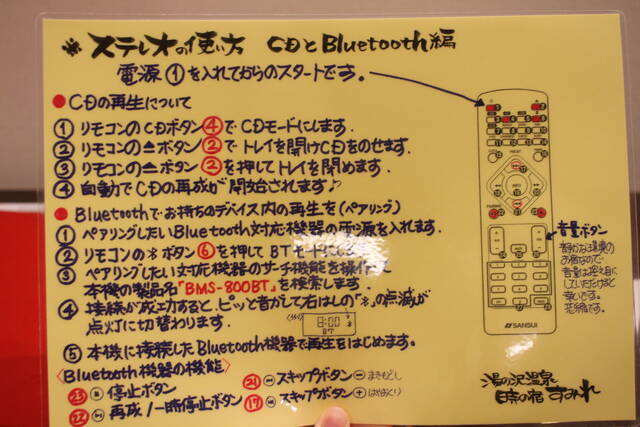 ※ ステレオの使い方 CDとBluetooth編
電源①を入れてからのスタートです。
● CDの再生について
① リモコンのCDボタン④でCDモードにします.
② リモコンの⏏ボタン②でトレイを開けCDをのせます.
③ リモコンの⏏ボタン②を押してトレイを閉めます.
④ 自動でCDの再成が開始されます♪
● Bluetoothでお持ちのデバイス内の再生を(ペアリング)
① ペアリングしたいBluetooth対応機器の電源を入れます.
② リモコンの*ボタン⑥を押してBTモードにします
③ ペアリングしたい対応機器のサーチ機能を操作して
本機の製品名「BMS-800BT」を検索します.
④ 接続が成功するとピッと音がして右はしの「*」の点滅が
点灯に切替わります.
8:00
BT
⑤ 本機に接続したBluetooth機器で再生をはじめます.
〈Bluetooth機器の機能〉
㉓ 停止ボタン
㉒ 再成/一時停止ボタン
㉑ スキップボタン⊖まきもどし
⑰ スキップボタン⊕はやおくり
音量ボタン
静かな環境の
お宿なので
音量は控え目に
していただけると
幸いです。
SANSUI
湯の沢温泉
時の宿 すみれ